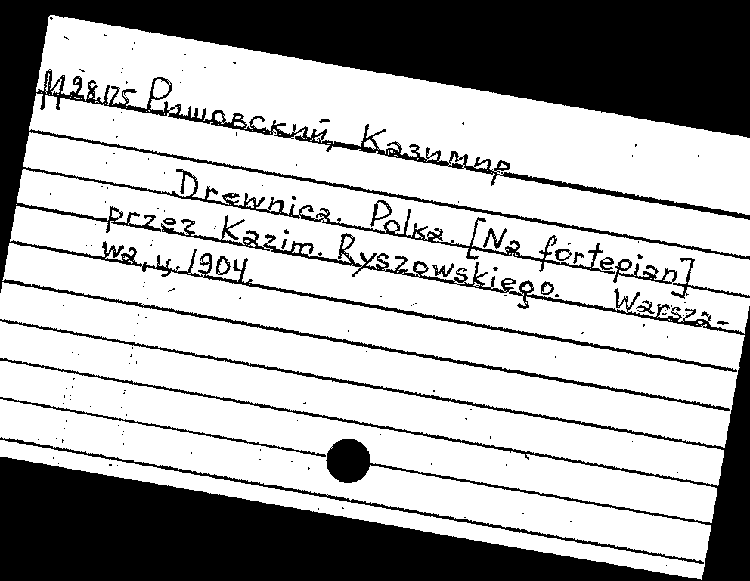 М28.175 Ришовский, Казимир
Drewnica. Polka. [Na fortepian]
przez Kazim. Ryszowskiego. Warsza-
wa, ц. 1904.